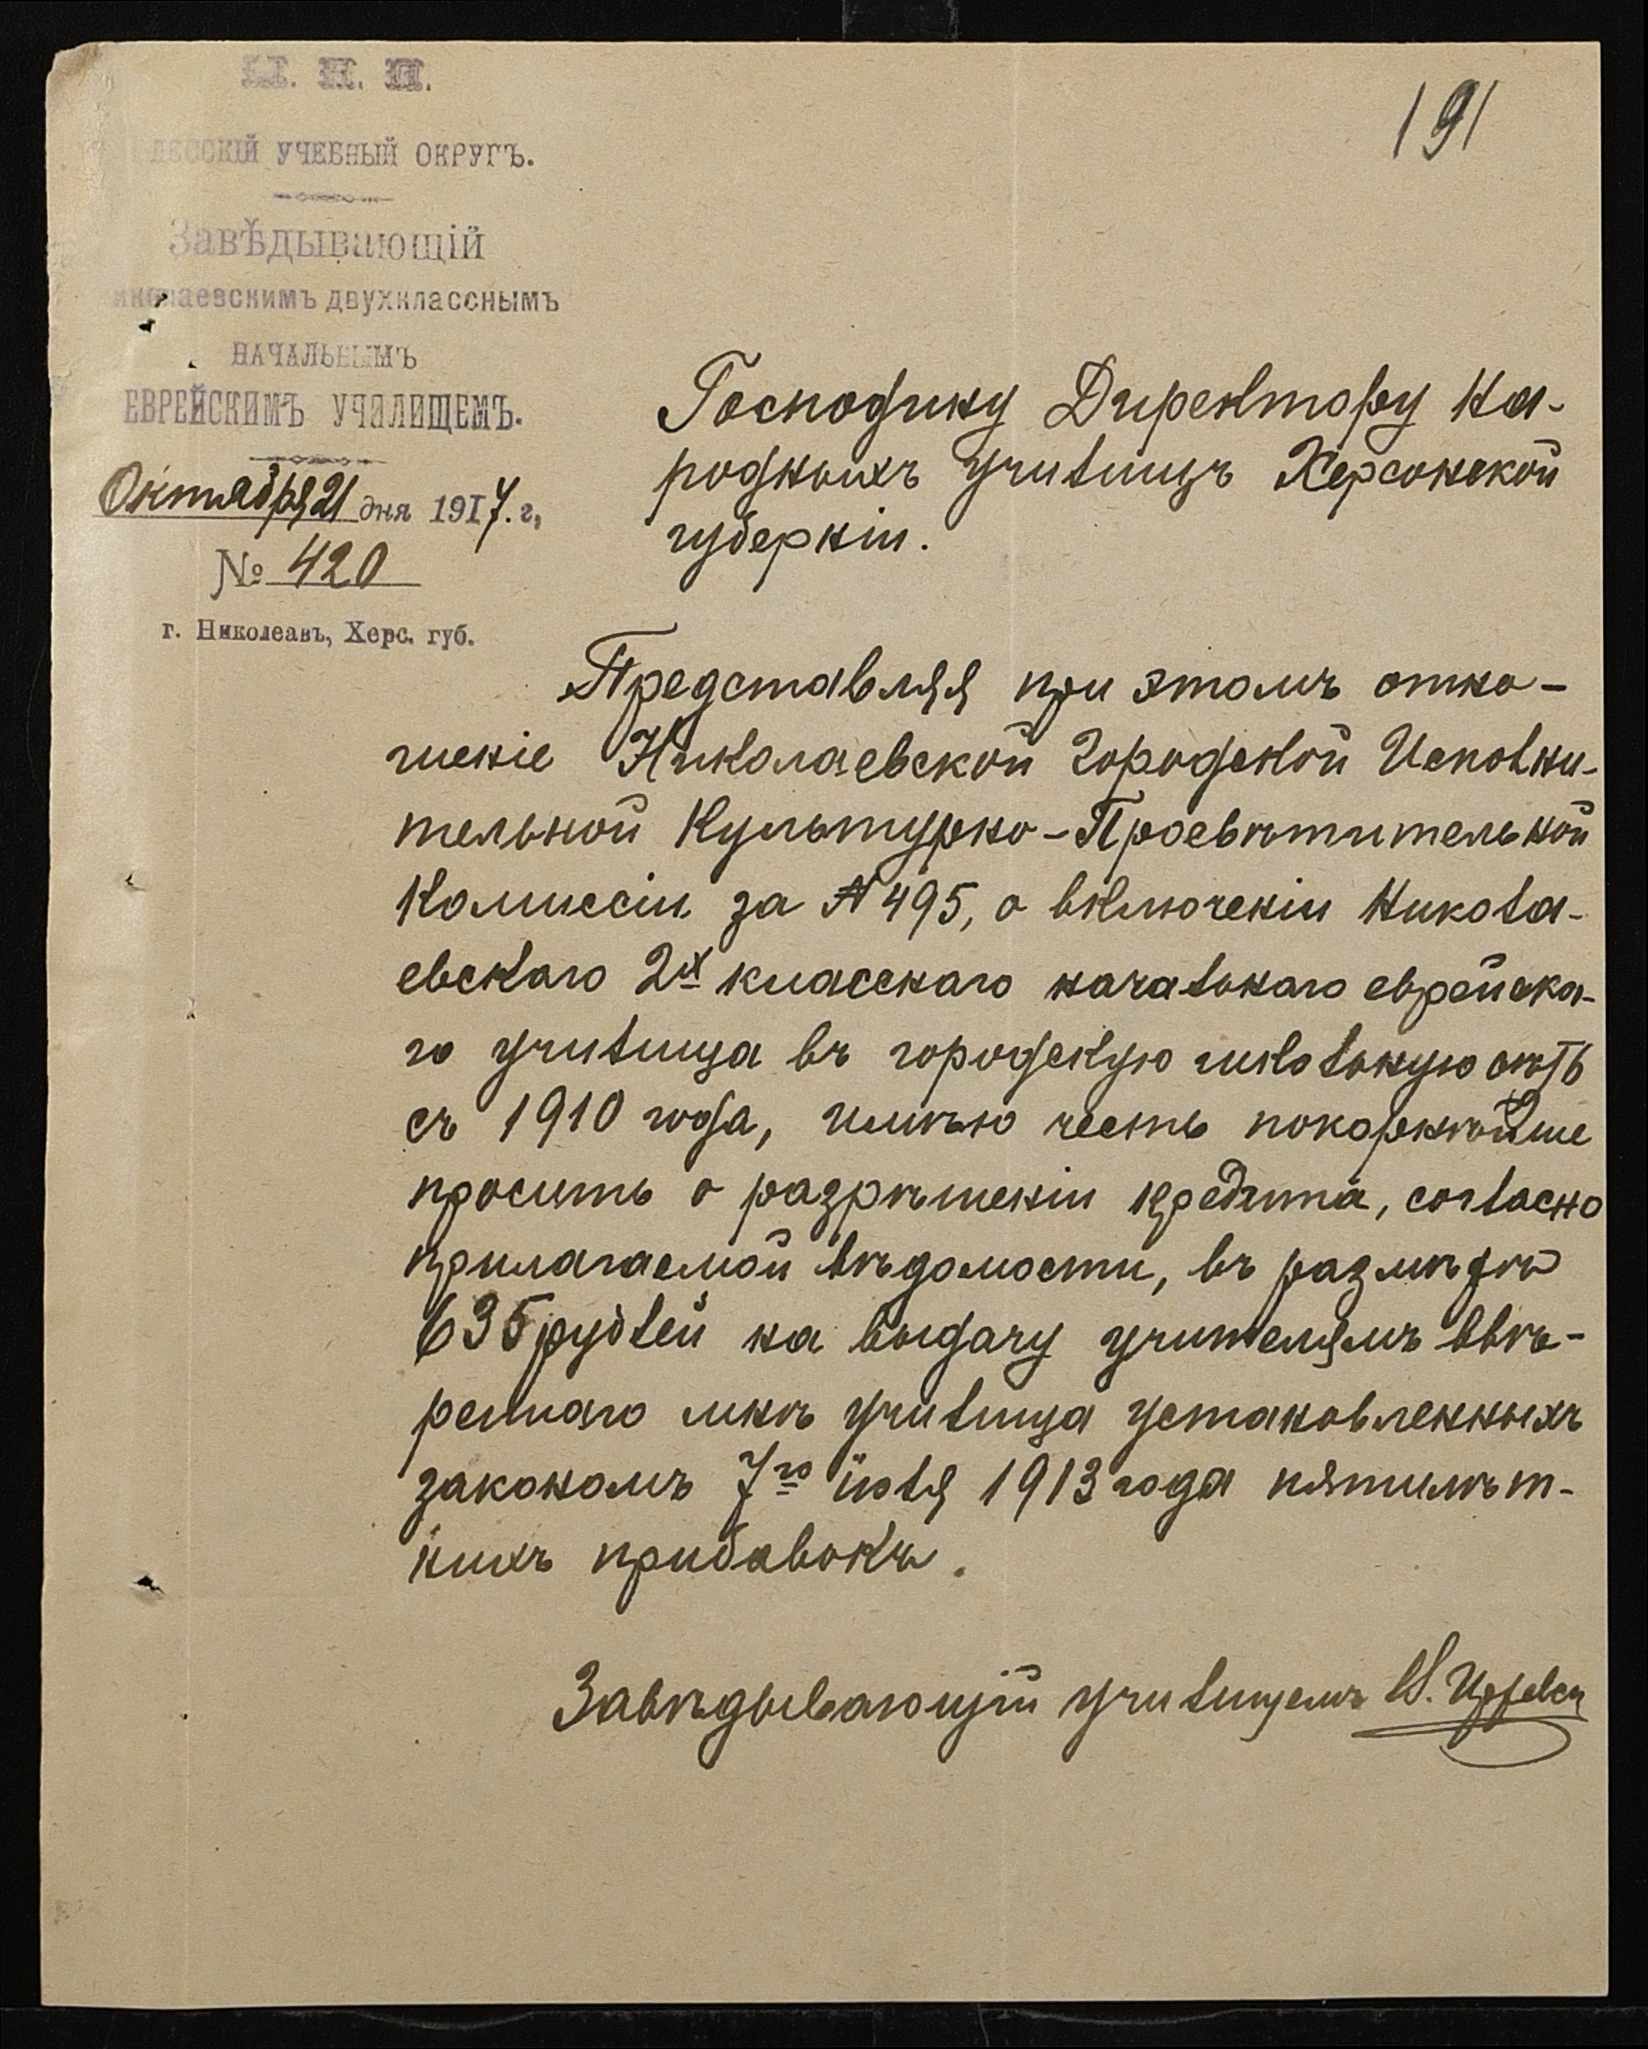 М. Н. П.
191
ДЕССКІЙ УЧЕБНЫЙ ОКРУГЪ.
Завѣдывающій
иколаевскимъ двухкласснымъ
НАЧАЛЬНЫМЪ
ЕВРЕЙСКИМЪ УЧИЛИЩЕМЪ.
Октября 21 дня 1917. г.
№ 420
г. Николеавъ, Херс. губ.
Господину Директору На-
родныхъ училищъ Херсонской
губерніи.
Представляя при этомъ отно-
шеніе Николаевской Городской Исполни-
тельной Культурно-Просвѣтительной
Комиссіи за № 495, о включеніи Никола-
евскаго 2х класснаго начальнаго еврейска-
го училища въ городскую школьную сѣть
съ 1910 года, имѣю честь покорнѣйше
просить о разрѣшеніи кредита, согласно
прилагаемой вѣдомости, въ размѣрѣ
635 рублей на выдачу учителямъ ввѣ-
реннаго мнѣ училища установленныхъ
закономъ 7го іюля 1913 года пятилѣт-
нихъ прибавокъ.
Завѣдывающій училищемъ